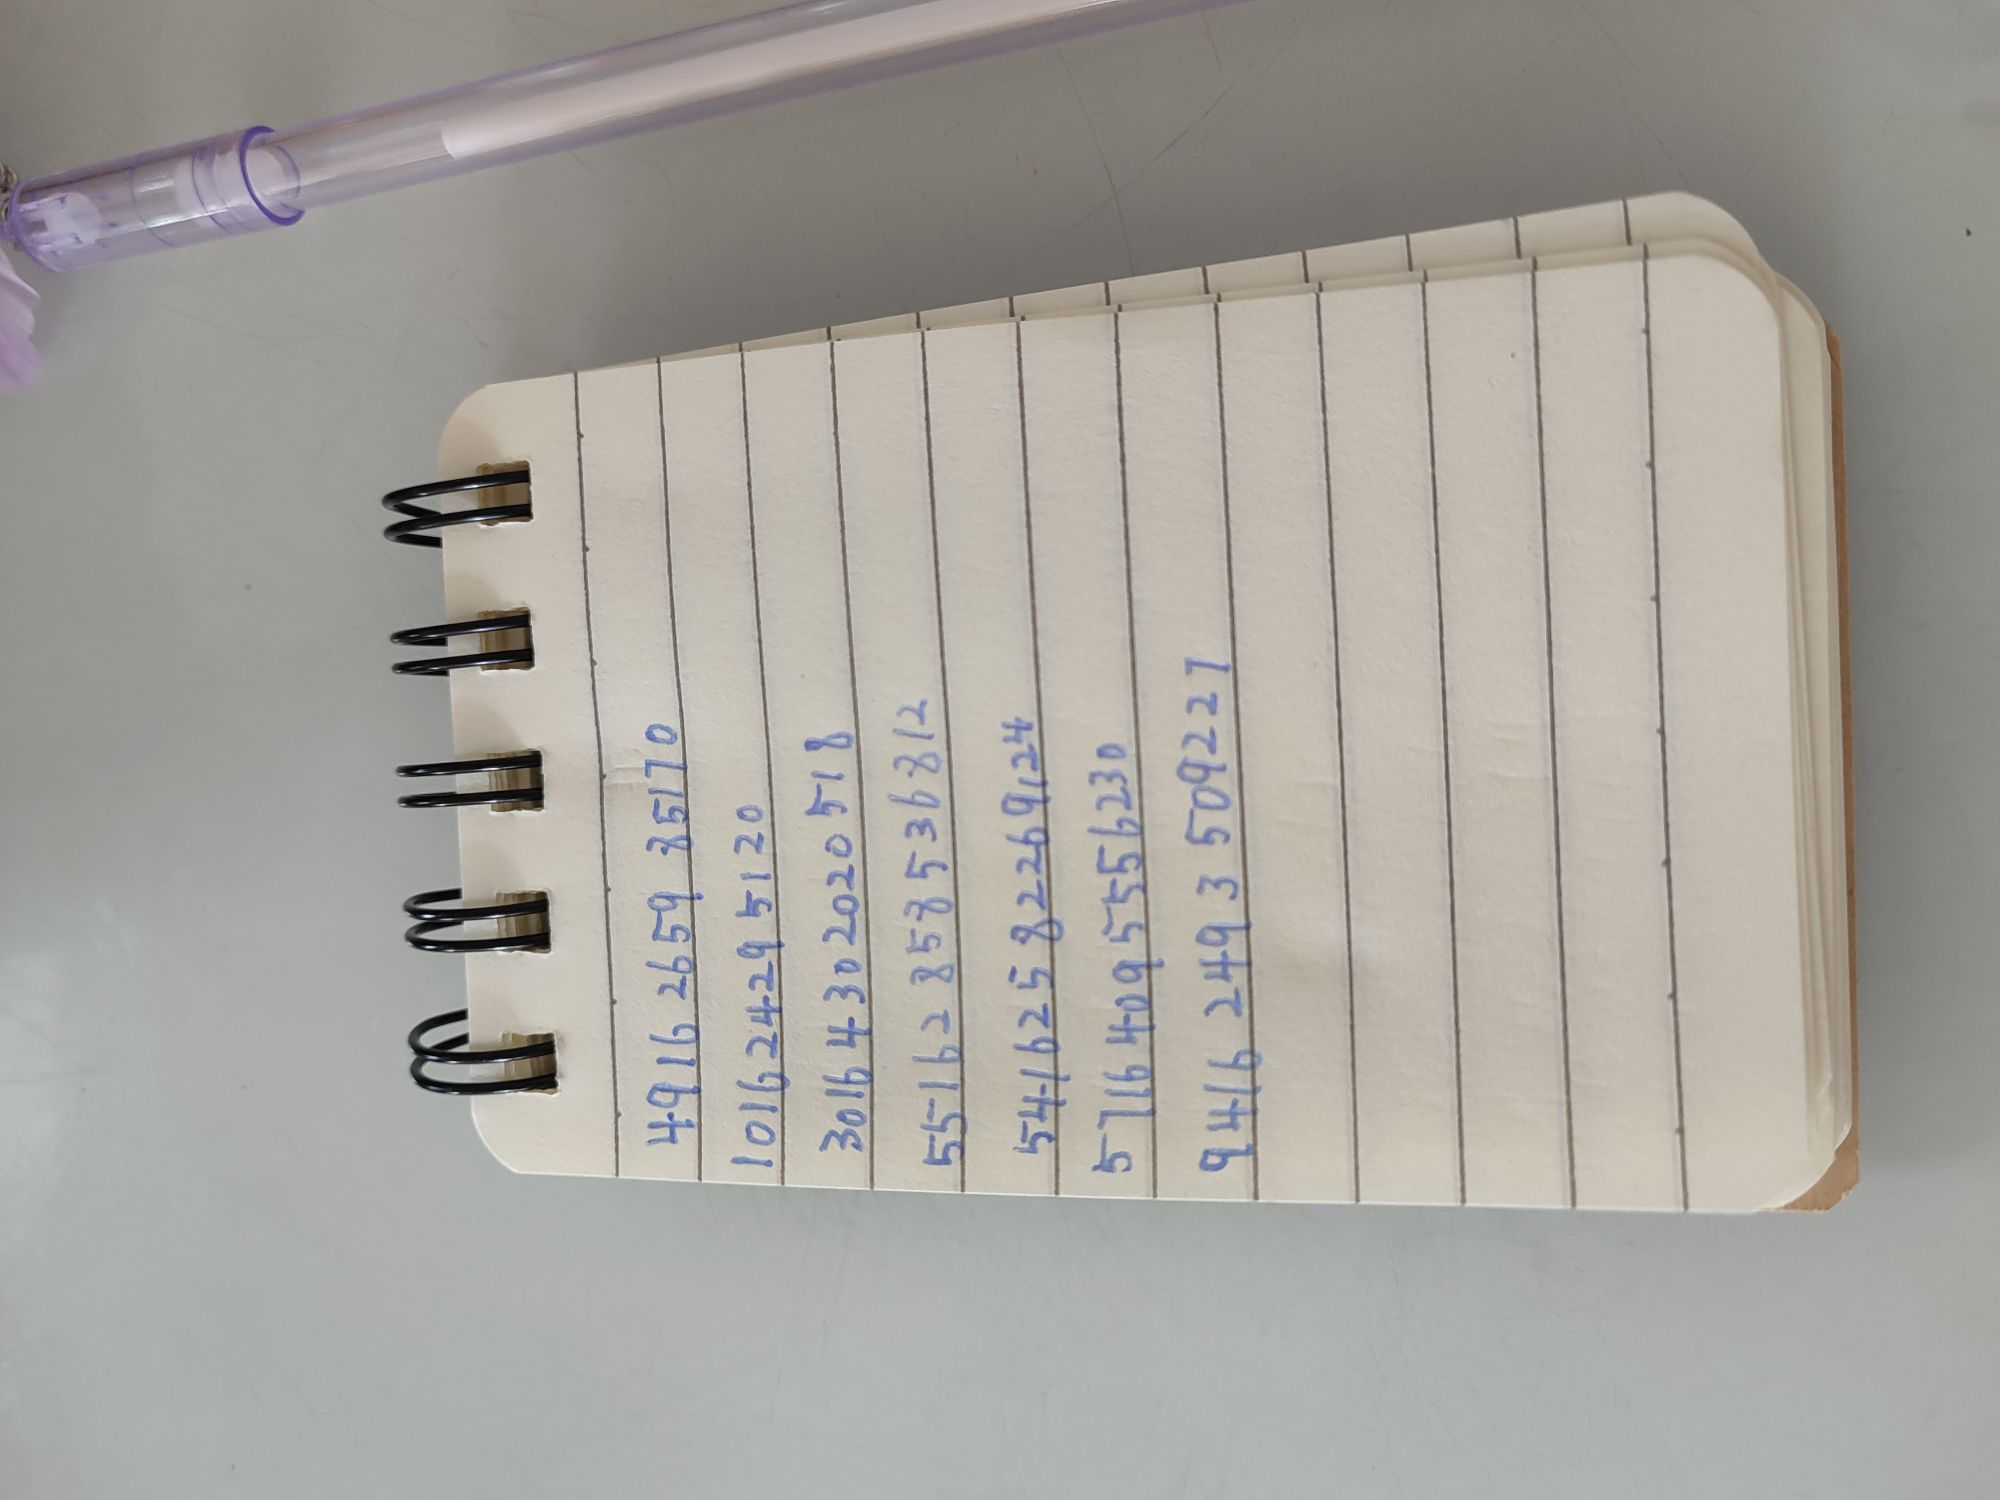 4916 2659 85170
10162429 5120
3016 4302020518
55162 858536812
541625 82269124
5716409555 6230
9416 2493 509227